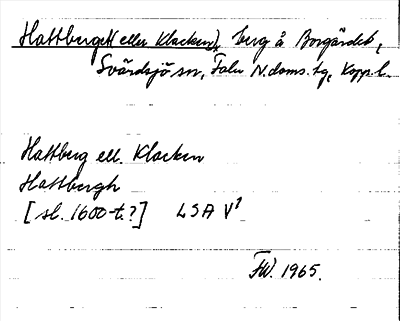 Hattberget (eller Klacken), berg å Borgärdet,
Svärdsjö sn, Falu N. doms. tg, Kopp. l.
Hattberg ell. Klacken
Hattbergh
[sl. 1600-t.?] LSA V?
FW. 1965.